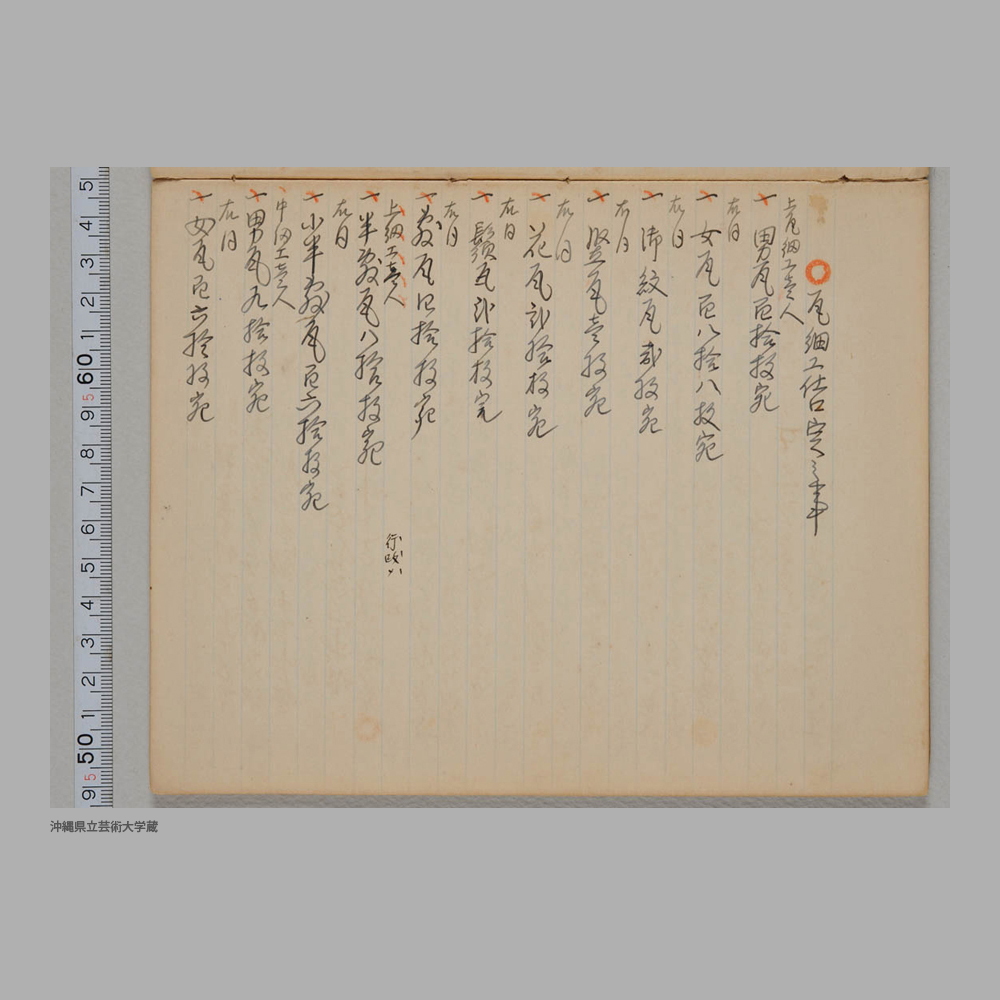 瓦細工仕口定之事
上瓦細工壱人
一 男瓦百拾枚宛
右同
一 女瓦百八拾八枚宛
右同
一 御紋瓦弐枚宛
右同
一 竪瓦壱枚宛
右同
一 花瓦弐拾枚宛
右同
一 鬚瓦弐拾枚宛
右同
一 敷瓦四拾枚宛
上細工壱人
一 半敷瓦八拾枚宛
右同
一 小半敷瓦百六拾枚宛
中細工壱人
一 男瓦九拾枚宛
右同
一 女瓦百六拾枚宛
沖縄県立芸術大学蔵